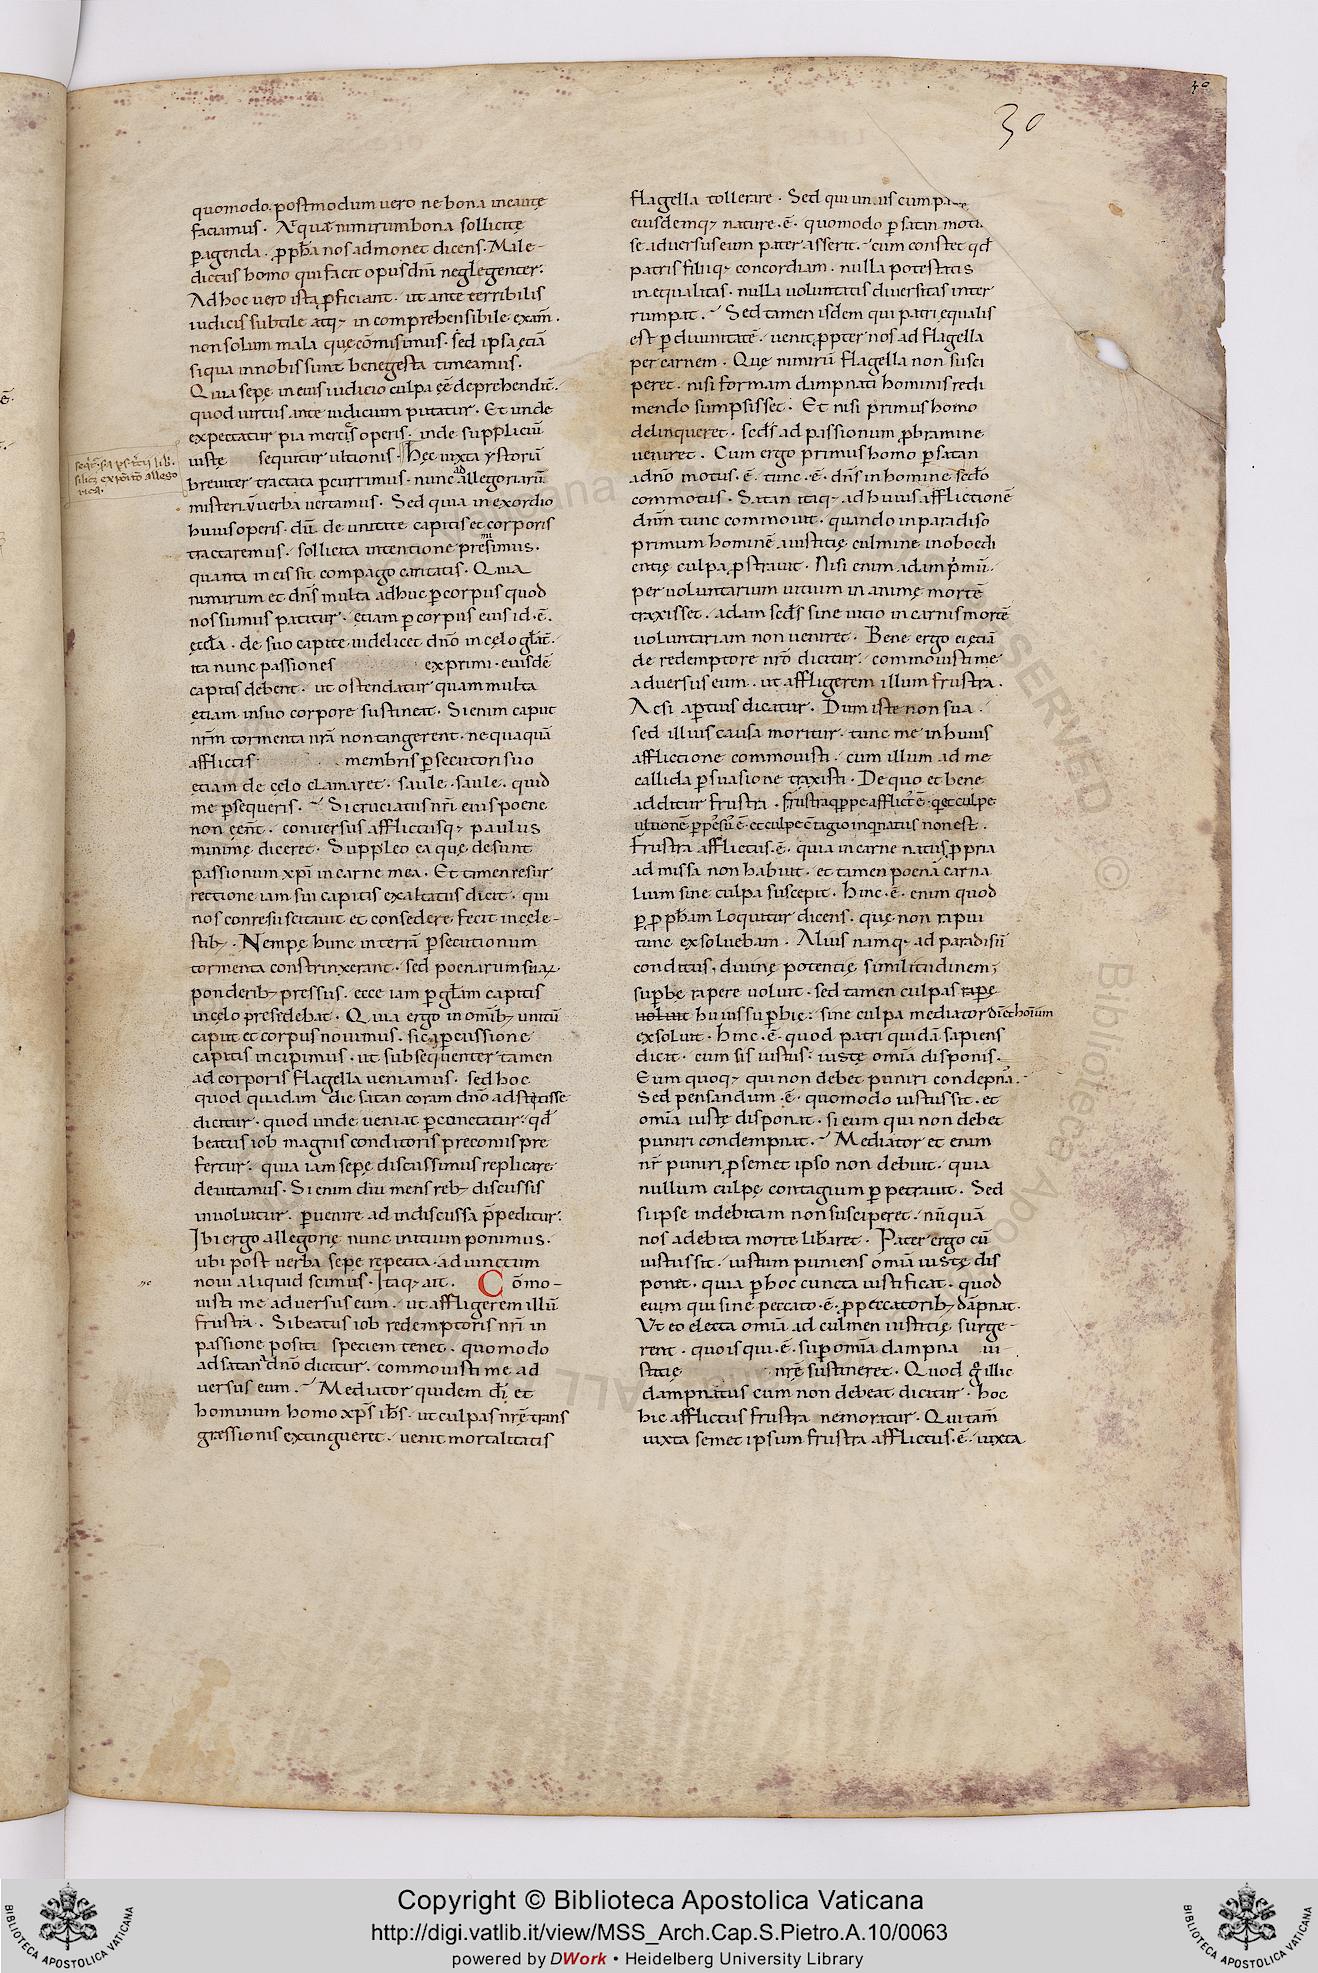 30
30
quomodo. postmodum uero ne bona incautę
faciamus. Aequa nimirum bona sollicitę
ꝑagenda. ꝓph̄a nos admonet dicens. Male-
dictus homo qui facit opus dn̄i neglegenter:
Adhoc uero ista ꝓficiant. ut ante terribilis
iudicis subtile atq; incomprehensibile exam̄.
non solum mala quę cōmisimus. sed ipsa ętiā
siqua innobis sunt bene gesta timeamus.
Quia sepę in eius iudicio culpa eē deprehendit̄.
quod uirtus ante iudicium putatur. Et unde
expectatur pia mercis operis. inde suppliciū
iustę sequitur ultionis. Hęc iuxta ystoriā
breuiter tractata ꝑcurrimus. nunc ad allegoriarū
misteriū uerba uertamus. Sed quia in exordio
huius operis. dū de unitate capitis et corporis
tractaremus. sollicita intentione premisimus.
quanta in eis sit compago caritatis. Quia
nimirum et dn̄s multa adhuc ꝑ corpus quod
nos sumus patitur. ętiam ꝑ corpus eius id. ē.
ęccl̄a. de suo capite. uidelicet dn̄o in cęlo gl̄at̄.
ita nunc passiones exprimi. eiusdē
capitis debent. ut ostendatur quam multa
ętiam in suo corpore sustineat. Si enim caput
nr̄m tormenta nr̄a non tangerent. nequaquā
afflictis membris ꝑsecutori suo
ętiam de cęlo clamaret. saule. saule. quid
me ꝑsequeris. Si cruciatus nr̄i eius poene
non eēnt. conuersus afflictusq; paulus
minimę diceret. Suppleo ea quę desunt
passionum xp̄i in carne mea. Et tamen resur
rectione iam sui capitis exaltatus dicit. qui
nos conresuscitauit et consedere fecit in cęle-
stib;. Nempę hunc in terrā ꝑsecutionum
tormenta constrinxerant. sed poenarum suaꝝ
ponderib; pressus. ecce iam ꝑ gl̄am capitis
in cęlo presidebat. Quia ergo in omīb; unitū
caput et corpus nouimus. sic a ꝑcussione
capitis incipimus. ut subsequenter tamen
ad corporis flagella ueniamus. sed hoc
quod quadam die satan coram dn̄o adstetisse
dicitur. quod unde ueniat ꝑconctatur: qd̄
beatus iob magnis conditoris preconiis pre
fertur. quia iam sepę discussimus replicare
deuitamus. Si enim diu mens reb; discussis
inuoluitur. ꝑuenire ad indiscussa p̄peditur:
Ibi ergo allegorię nunc initium ponimus.
ubi post uerba sepe repetita. adiunctum
noui aliquid scimus. Itaq; ait. Cōmo-
uisti me aduersus eum. ut affligerem illū
frustra. Si beatus iob redemptoris nr̄i in
passione positi speciem tenet. quomodo
ad satan dn̄o dicitur. commouisti me ad
uersus eum. Mediator quidem dī et
hominum homo xp̄s ih̄s. ut culpas nr̄ę trans
gressionis extingueret. uenit mortalitatis
flagella tollerare. Sed qui unius cum pa
eiusdemq; nature. ē. quomodo ꝑ satan motu
se aduersus eum pater asserit. cum constet qd̄
patris filiiq; concordiam. nulla potestatis
inequalitas. nulla uoluntatis diuersitas inter
rumpat. Sed tamen isdem qui patri equalis
est ꝑ diuinitatē. uenit ꝓpter nos ad flagella
per carnem. Quę nimirū flagella non susci
peret. nisi formam dampnati hominis redi
mendo sumpsisset. Et nisi primus homo
delinqueret. secd̄s ad passionum ꝓbra minime
ueniret. Cum ergo primus homo ꝑ satan
a dn̄o motus. ē. tunc. ē. dn̄s in homine secd̄o
commotus. Satan itaq; ad huius afflictionē
dn̄m tunc commouit. quando in paradiso
primum hominē a iustitię culmine inoboedi
entię culpa ꝓstrauit. Nisi enim adam p̄mū
per uoluntarium uitium in animę mortē
traxisset. adam secd̄s sine uitio in carnis mortē
uoluntariam non ueniret. Bene ergo ei ętiā
de redemptore nr̄o dicitur. commouisti me
aduersus eum. ut affligerem illum frustra.
Ac si aꝑtius dicatur. Dum iste non sua.
sed illius causa moritur. tunc me in huius
afflictione commouisti. cum illum ad me
callida ꝑsuasione traxisti. De quo et bene
additur frustra.
Frustra afflictus. ē. quia in carne natus ꝓpria
admissa non habuit. et tamen poenā carna
lium sine culpa suscepit. Hinc. ē. enim quod
ꝑ ꝓph̄am loquitur dicens. quę non rapui
tunc exsoluebam. Alius namq; ad paradisū
conditus, diuinę potentię similitudinem;
suꝑbe rapere uoluit. sed tamen culpas rapę
uoluit huius suꝑbię: sine culpa mediator dī et hoīum
exsoluit. Hinc. ē. quod patri quidā sapiens
dicit. cum sis iustus: iustę omīa disponis.
Eum quoq; qui non debet puniri condepn̄a.
Sed pensandum. ē. quomodo iustus sit. et
omīa iustę disponat. si eum qui non debet
puniri condempnat. Mediator et enim
nr̄ puniri ꝓ semet ipso non debuit. quia
nullum culpę contagium ꝑpetrauit. Sed
si ipse indebitam non susciperet. nūquā
nos a debita morte lib̄aret. Pater ergo cū
iustus sit. iustum puniens omīa iustę dis
ponet. quia ꝑ hoc cuncta iustificat. quod
eum qui sine peccato. ē. ꝓ peccatorib; dāpnat.
Ut eo electa omīa ad culmen iustitię surge-
rent. quo is qui. ē. suꝑ omīa dampna iu
stitię nr̄ę sustineret. Quod g̊ illic
dampnatus cum non debeat dicitur. hoc
hic afflictus frustra nemoratur. Qui tam̄
iuxta semet ipsum frustra afflictus. ē. iuxta
Copyright © Biblioteca Apostolica Vaticana
http://digi.vatlib.it/view/MSS_Arch.Cap.S.Pietro.A.10/0063
powered by DWork • Heidelberg University Library
BIBLIOTECA APOSTOLICA VATICANA
BIBLIOTECA APOSTOLICA VATICANA